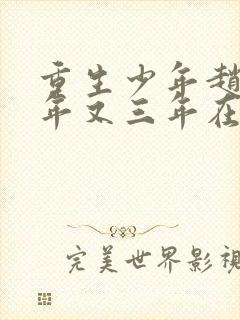 重生少年趙
年又三年在
完美世界影視